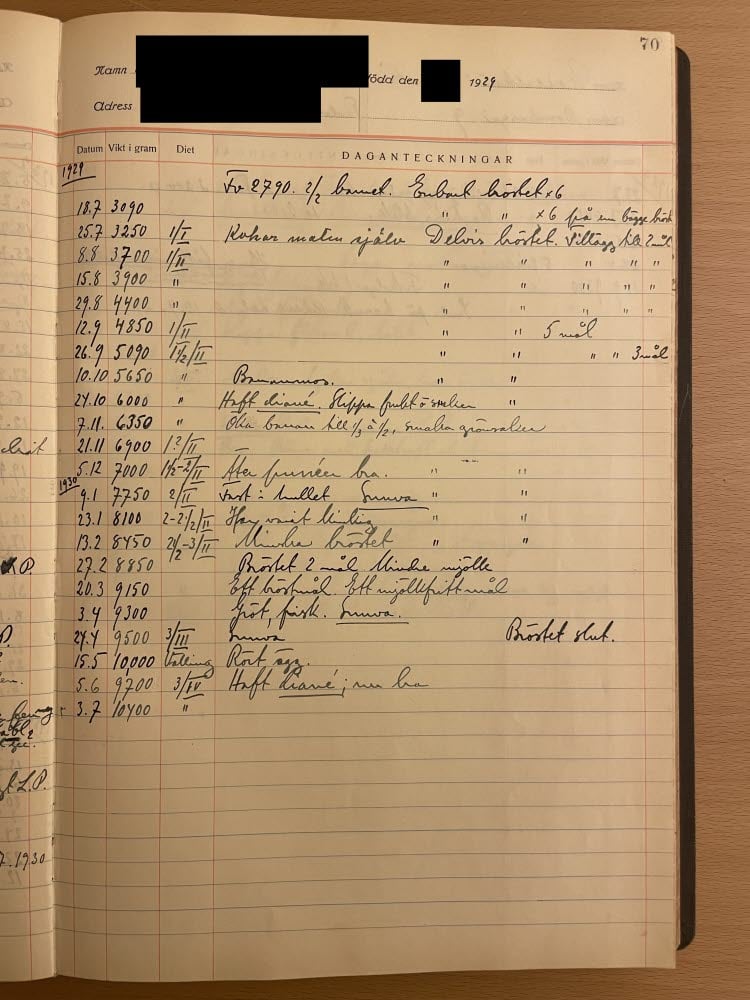 70
Namn född den 1929
Adress
Datum Vikt i gram Diet DAGANTECKNINGAR
1929
Fv 2790. 2/2 barnet. Enbart bröstet x6
18.7 3090 " " x6 från en bägge bröst
25.7 3250 1/I Kokar maten själv Delvis bröstet. Tillägg till 2 mål
8.8 3700 1/II " " " " "
15.8 3900 " " " " " "
29.8 4400 " " " " " "
12.9 4850 1/II " " 5 mål
26.9 5090 1 1/2/II " " " " 3 mål
10.10 5650 " Bananmos. " "
24.10 6000 " Haft diarré. Slippa frukt o "
7.11. 6350 " Öka banan till 1/3 à 1/2, smaka grönsaker
21.11 6900 /II
5.12 7000 1 1/2-2/II Äter puréer bra. " "
1930
9.1 7750 2/II Fast i hullet Sunva " "
23.1 8100 2-2 1/2/II Har varit " "
13.2 8450 2 1/2-3/II Mindre bröstet " "
27.2 8850 Bröstet 2 mål Mindre mjölk
20.3 9150 Ett bröstmål. Ett mjölkfritt mål
3.4 9300 Gröt, fisk. Sunva.
24.4 9500 3/III Sunva Bröstet slut.
15.5 10,000 Välling Rört ägg.
5.6 9700 3/IV Haft diarré; nu bra
3.7 10400 "
P.
P.
L.P.
7.1930